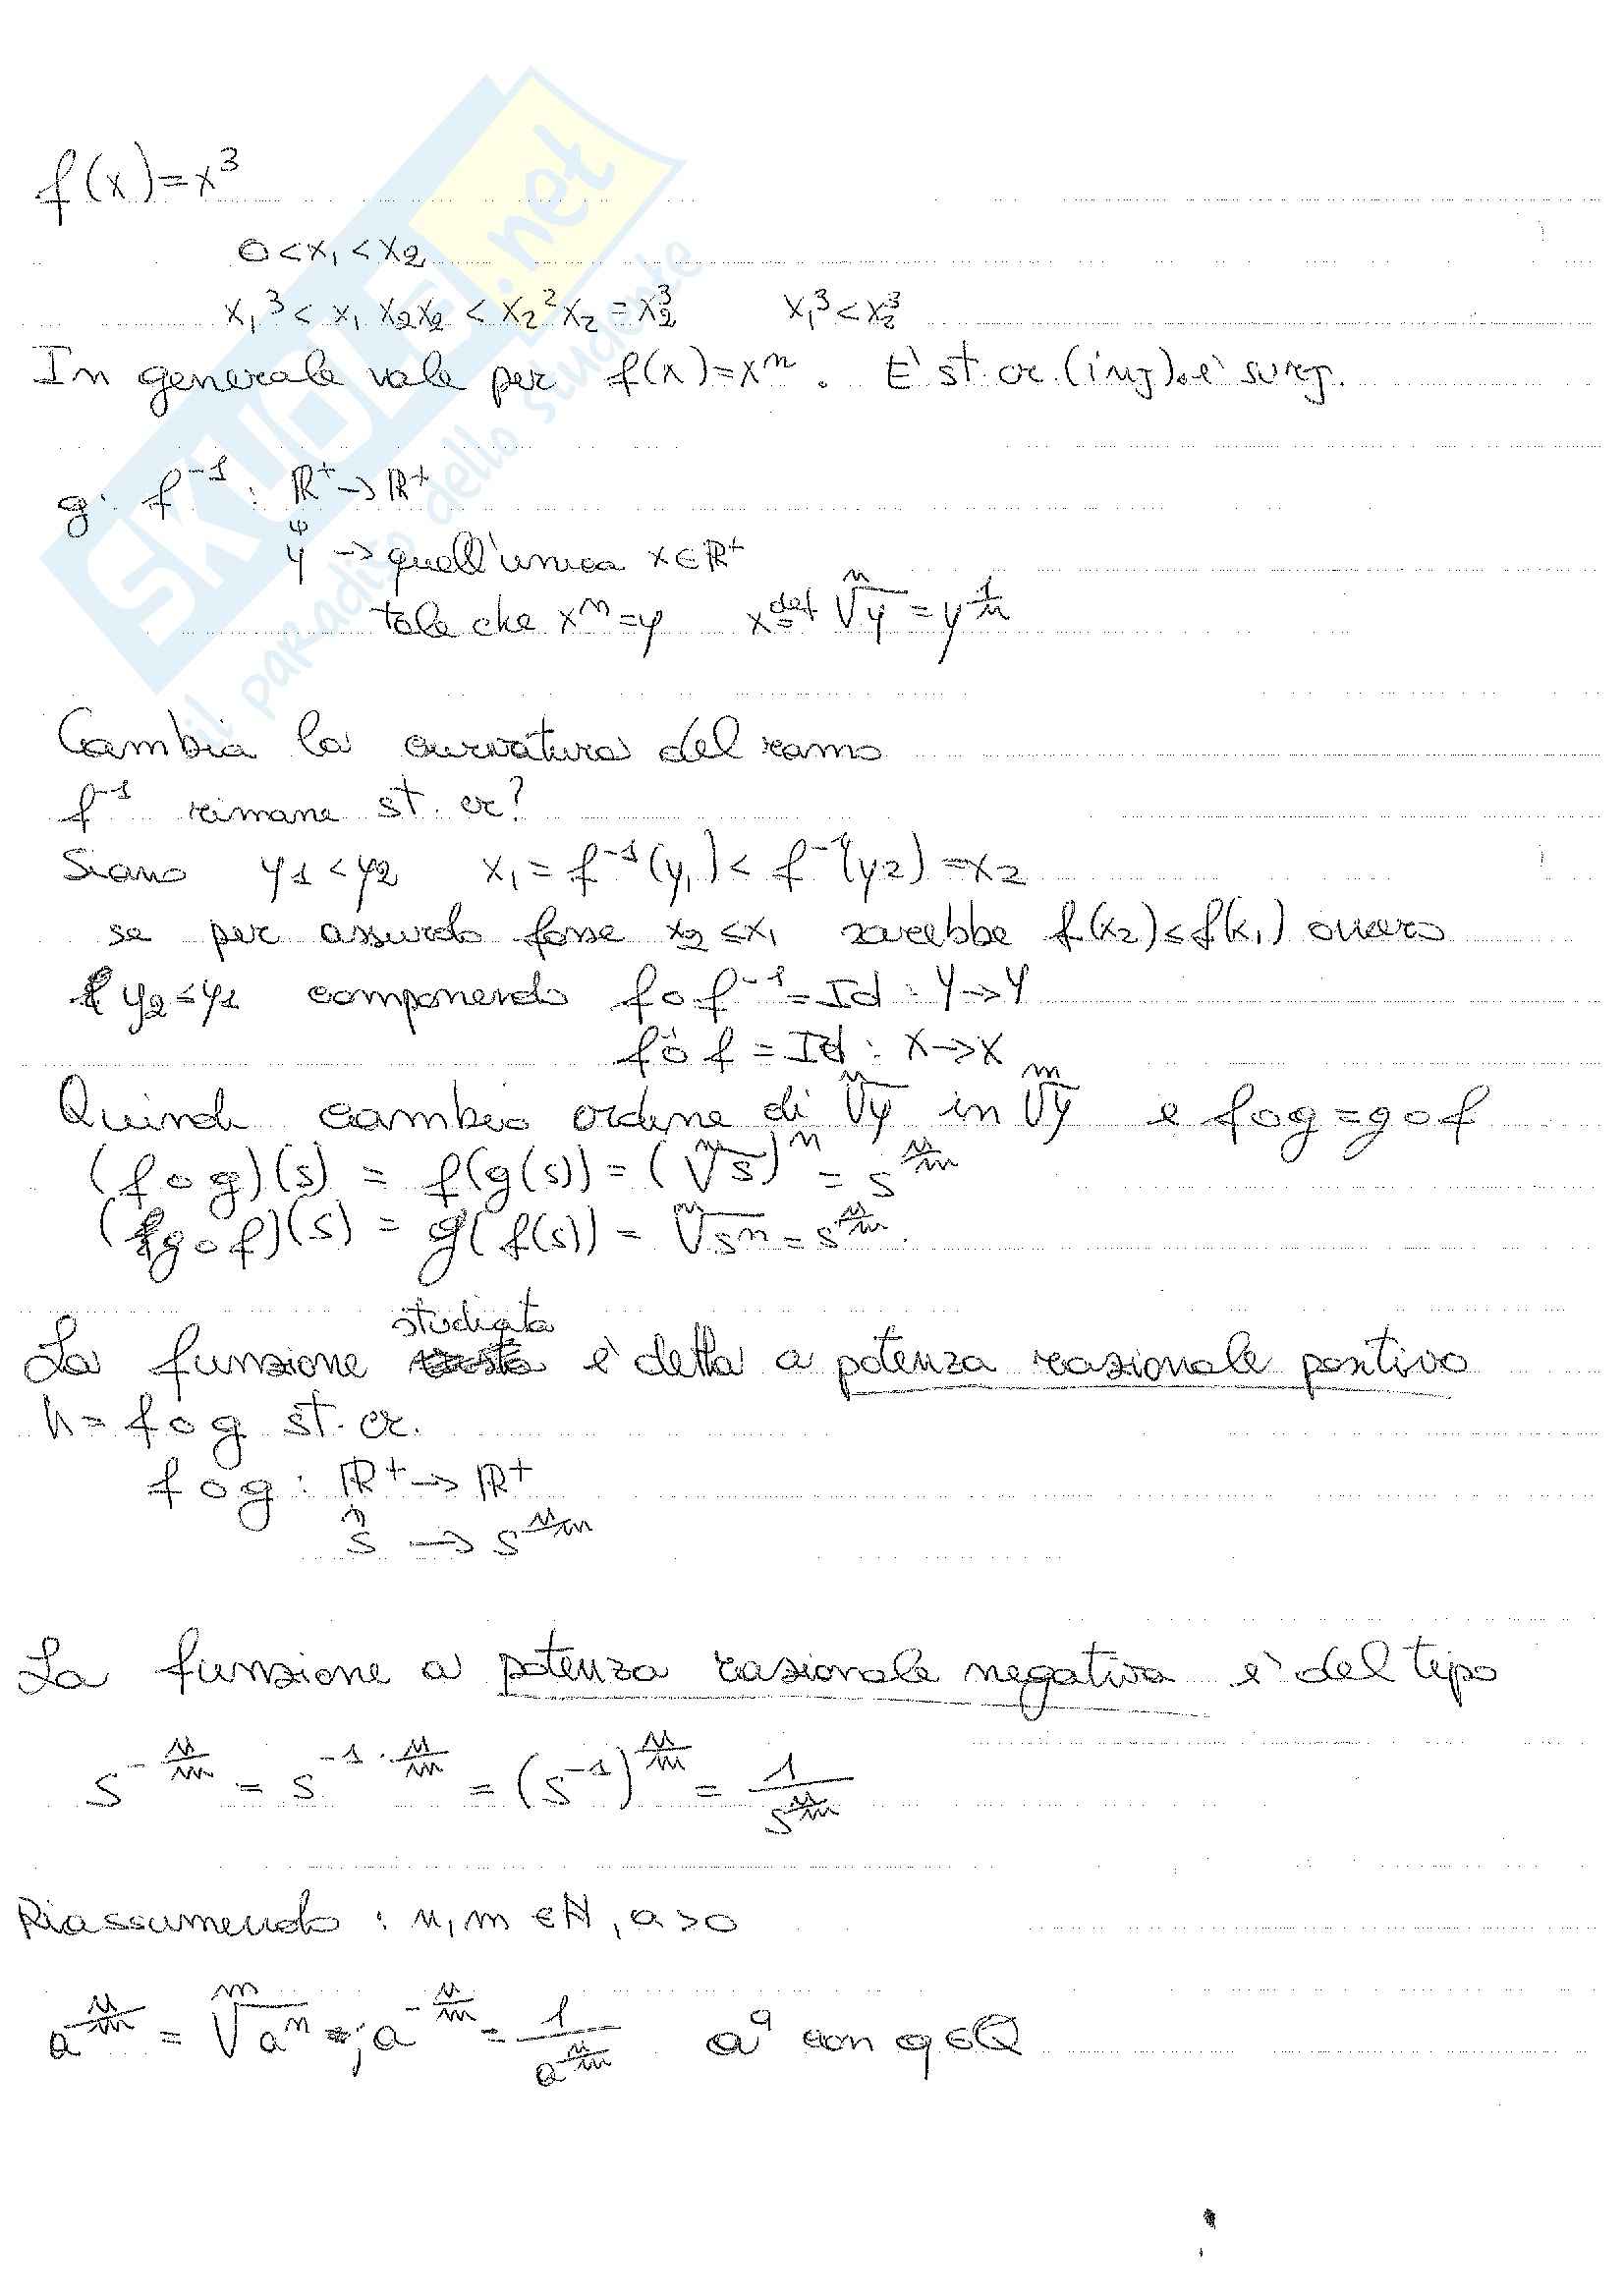 SKUOLA.net
il paradiso dello studente
f(x)=x³
0<x₁<x₂
x₁³< x₁ x₂x₂ < x₂²x₂ = x₂³ x₁³<x₂³
In generale vale per f(x)=xⁿ. E' st. cr. (inj). e' surj.
g: f⁻¹: ℝ⁺→ℝ⁺
y → quell'unica x∈ℝ⁺
tale che xⁿ=y x def= ⁿ√y = y^(1/n)
Cambia la curvatura del ramo
f⁻¹ rimane st. cr?
Siano y1<y2 x₁ = f⁻¹(y₁) < f⁻¹(y2) = x2
se per assurdo fosse x₂≤x₁ sarebbe f(x₂)≤f(x₁) ovvero
y₂≤y₁ componendo f∘f⁻¹=Id : Y→Y
f∘f = Id : X→X
Quindi cambio ordine di ⁿ√y in ᵐ√y e f∘g=g∘f
(f∘g)(s) = f(g(s)) = (ᵐ√s)ⁿ = s^(n/m)
(g∘f)(s) = g(f(s)) = ᵐ√sⁿ = s^(n/m).
La funzione studiata è detta a potenza razionale positiva
h= f∘g st. cr.
f∘g : ℝ⁺→ℝ⁺
s → s^(n/m)
La funzione a potenza razionale negativa e' del tipo
s^(-n/m) = s^(-1·n/m) = (s⁻¹)^(n/m) = 1/s^(n/m)
Riassumendo : n,m∈ℕ, a>0
a^(n/m) = ᵐ√aⁿ ; a^(-n/m) = 1/a^(n/m) a^q con q∈ℚ